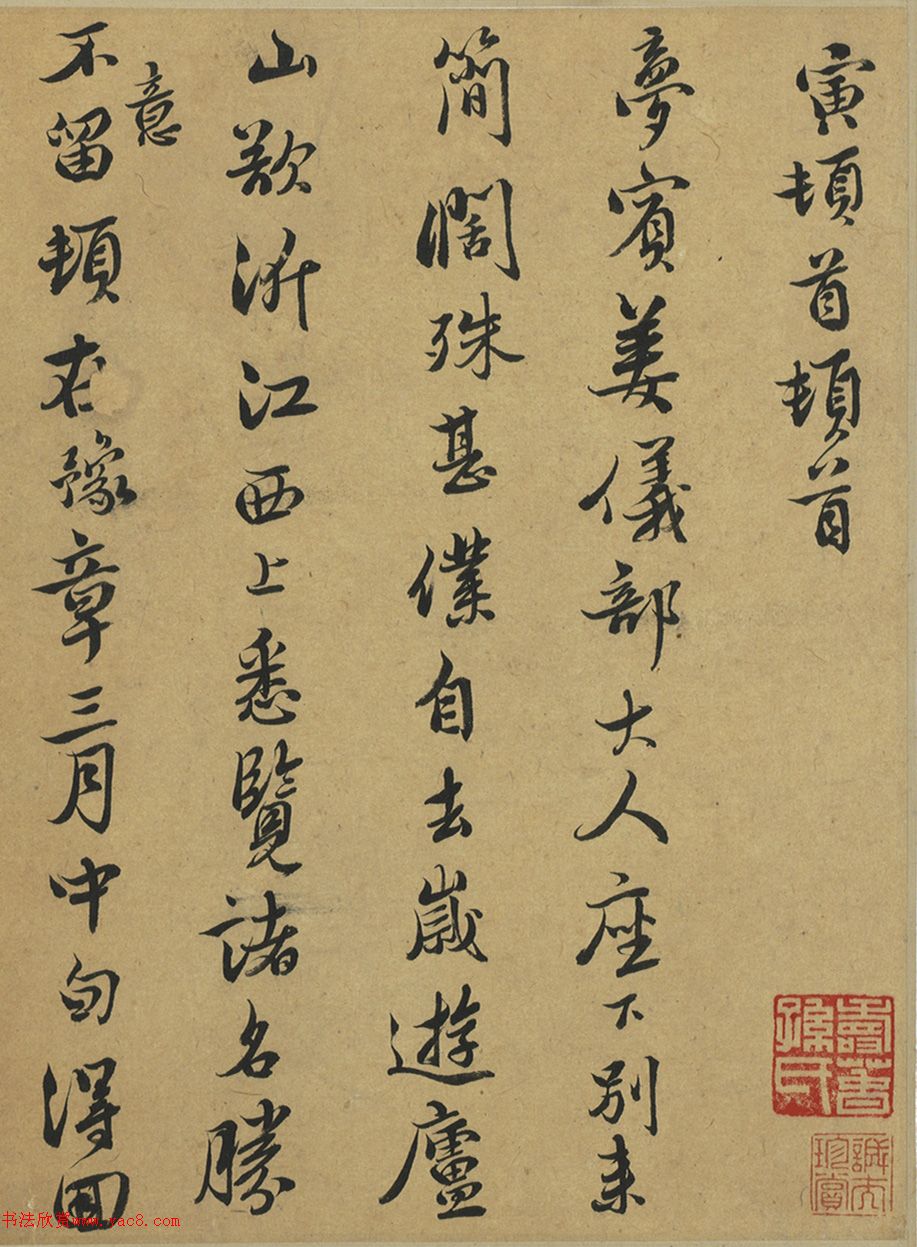 寅頓首頓首
夢賓姜儀部大人座下別来
簡濶殊甚僕自去歲遊廬
山歘泝江西上悉覽諸名勝
不意留頓在豫章三月中旬得回
書法欣賞www.yac8.com